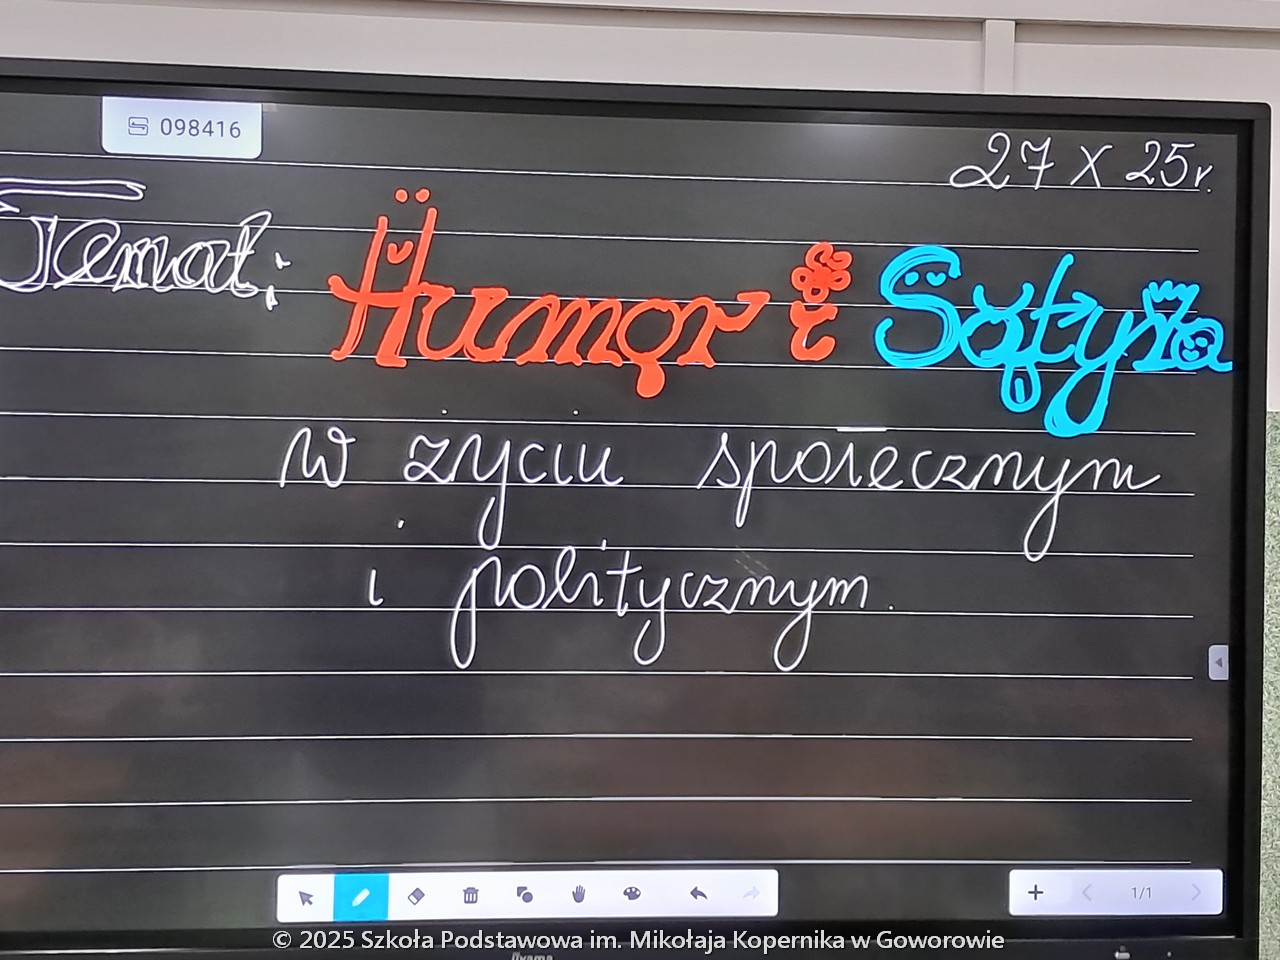 098416
27 X 25r.
Temat: Humor i Satyra
w życiu społecznym
i politycznym.
1/1
© 2025 Szkoła Podstawowa im. Mikołaja Kopernika w Goworowie
iiyama